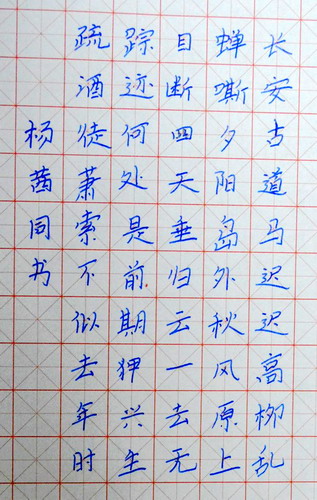 长安古道马迟迟高柳乱
蝉嘶夕阳岛外秋风原上
目断四天垂归云一去无
踪迹何处是前期狎兴生
疏酒徒萧索不似去年时
杨茜同书